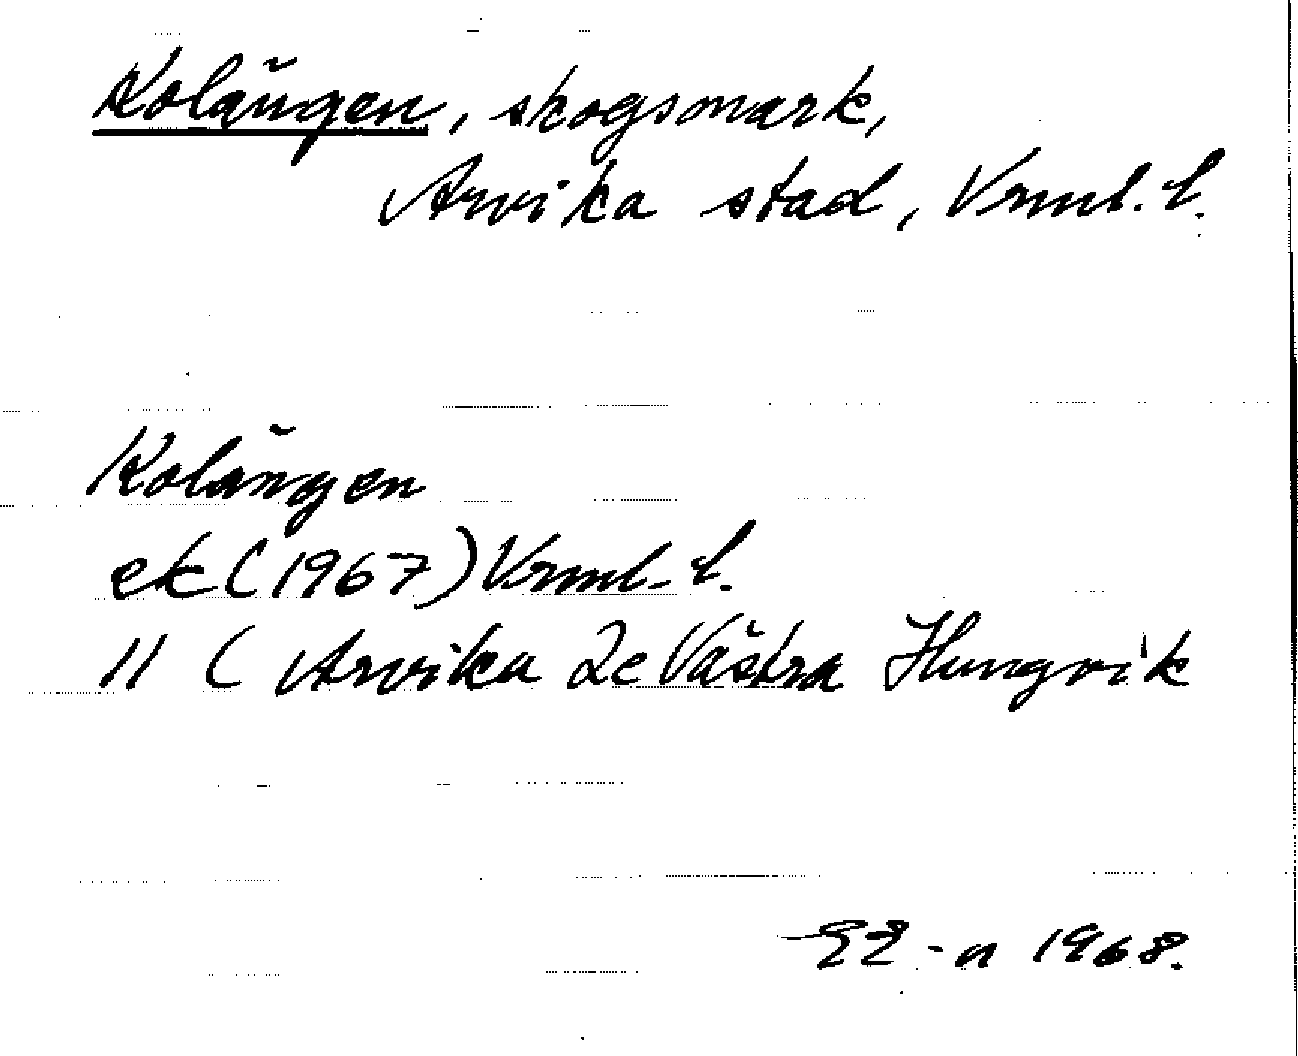 Kolängen, skogsmark,
Arvika stad, Vrml. l.
Kolängen
ek (1967) Vrml. l.
11 C Arvika 2e Västra Hungvik
-n 1968.